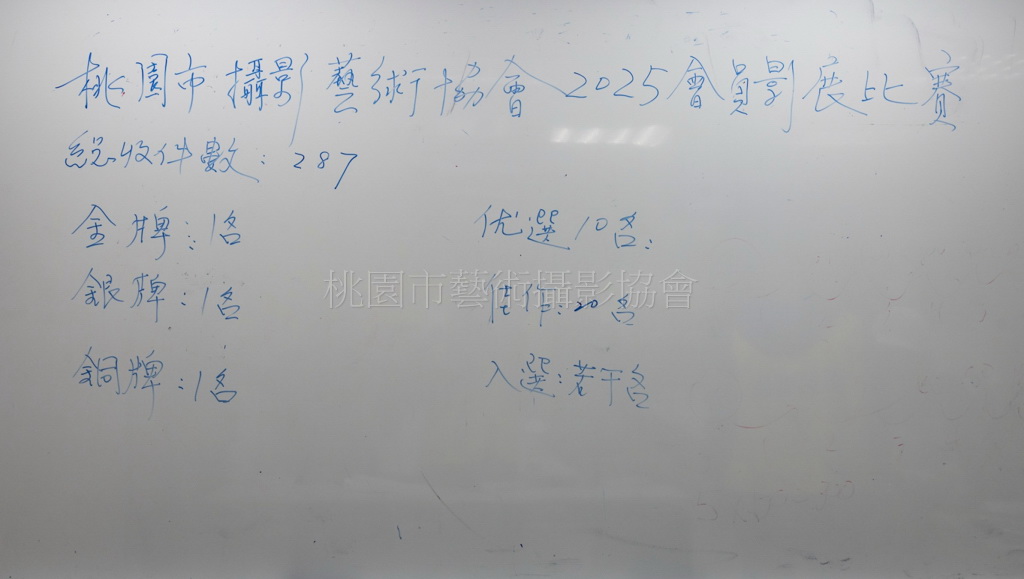 桃園市攝影藝術協會2025會員影展比賽
總收件數：287
金牌：1名
优選10名：
銀牌：1名
桃園市藝術攝影協會
佳作：20名
銅牌：1名
入選：若干名